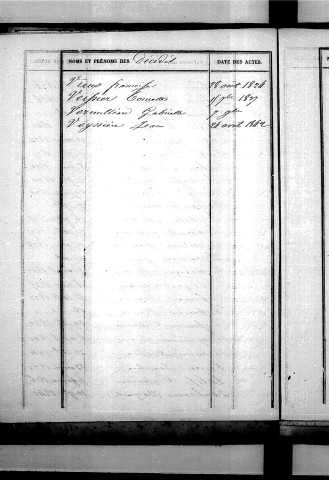 NOMS ET PRÉNOMS DES Décédés DATE DES ACTES.
Vieux françoise 28 août 1826
Verpier 15 9bre
Vermilliard Gabrielle 7
Veyssière Jean 26 avril 1862